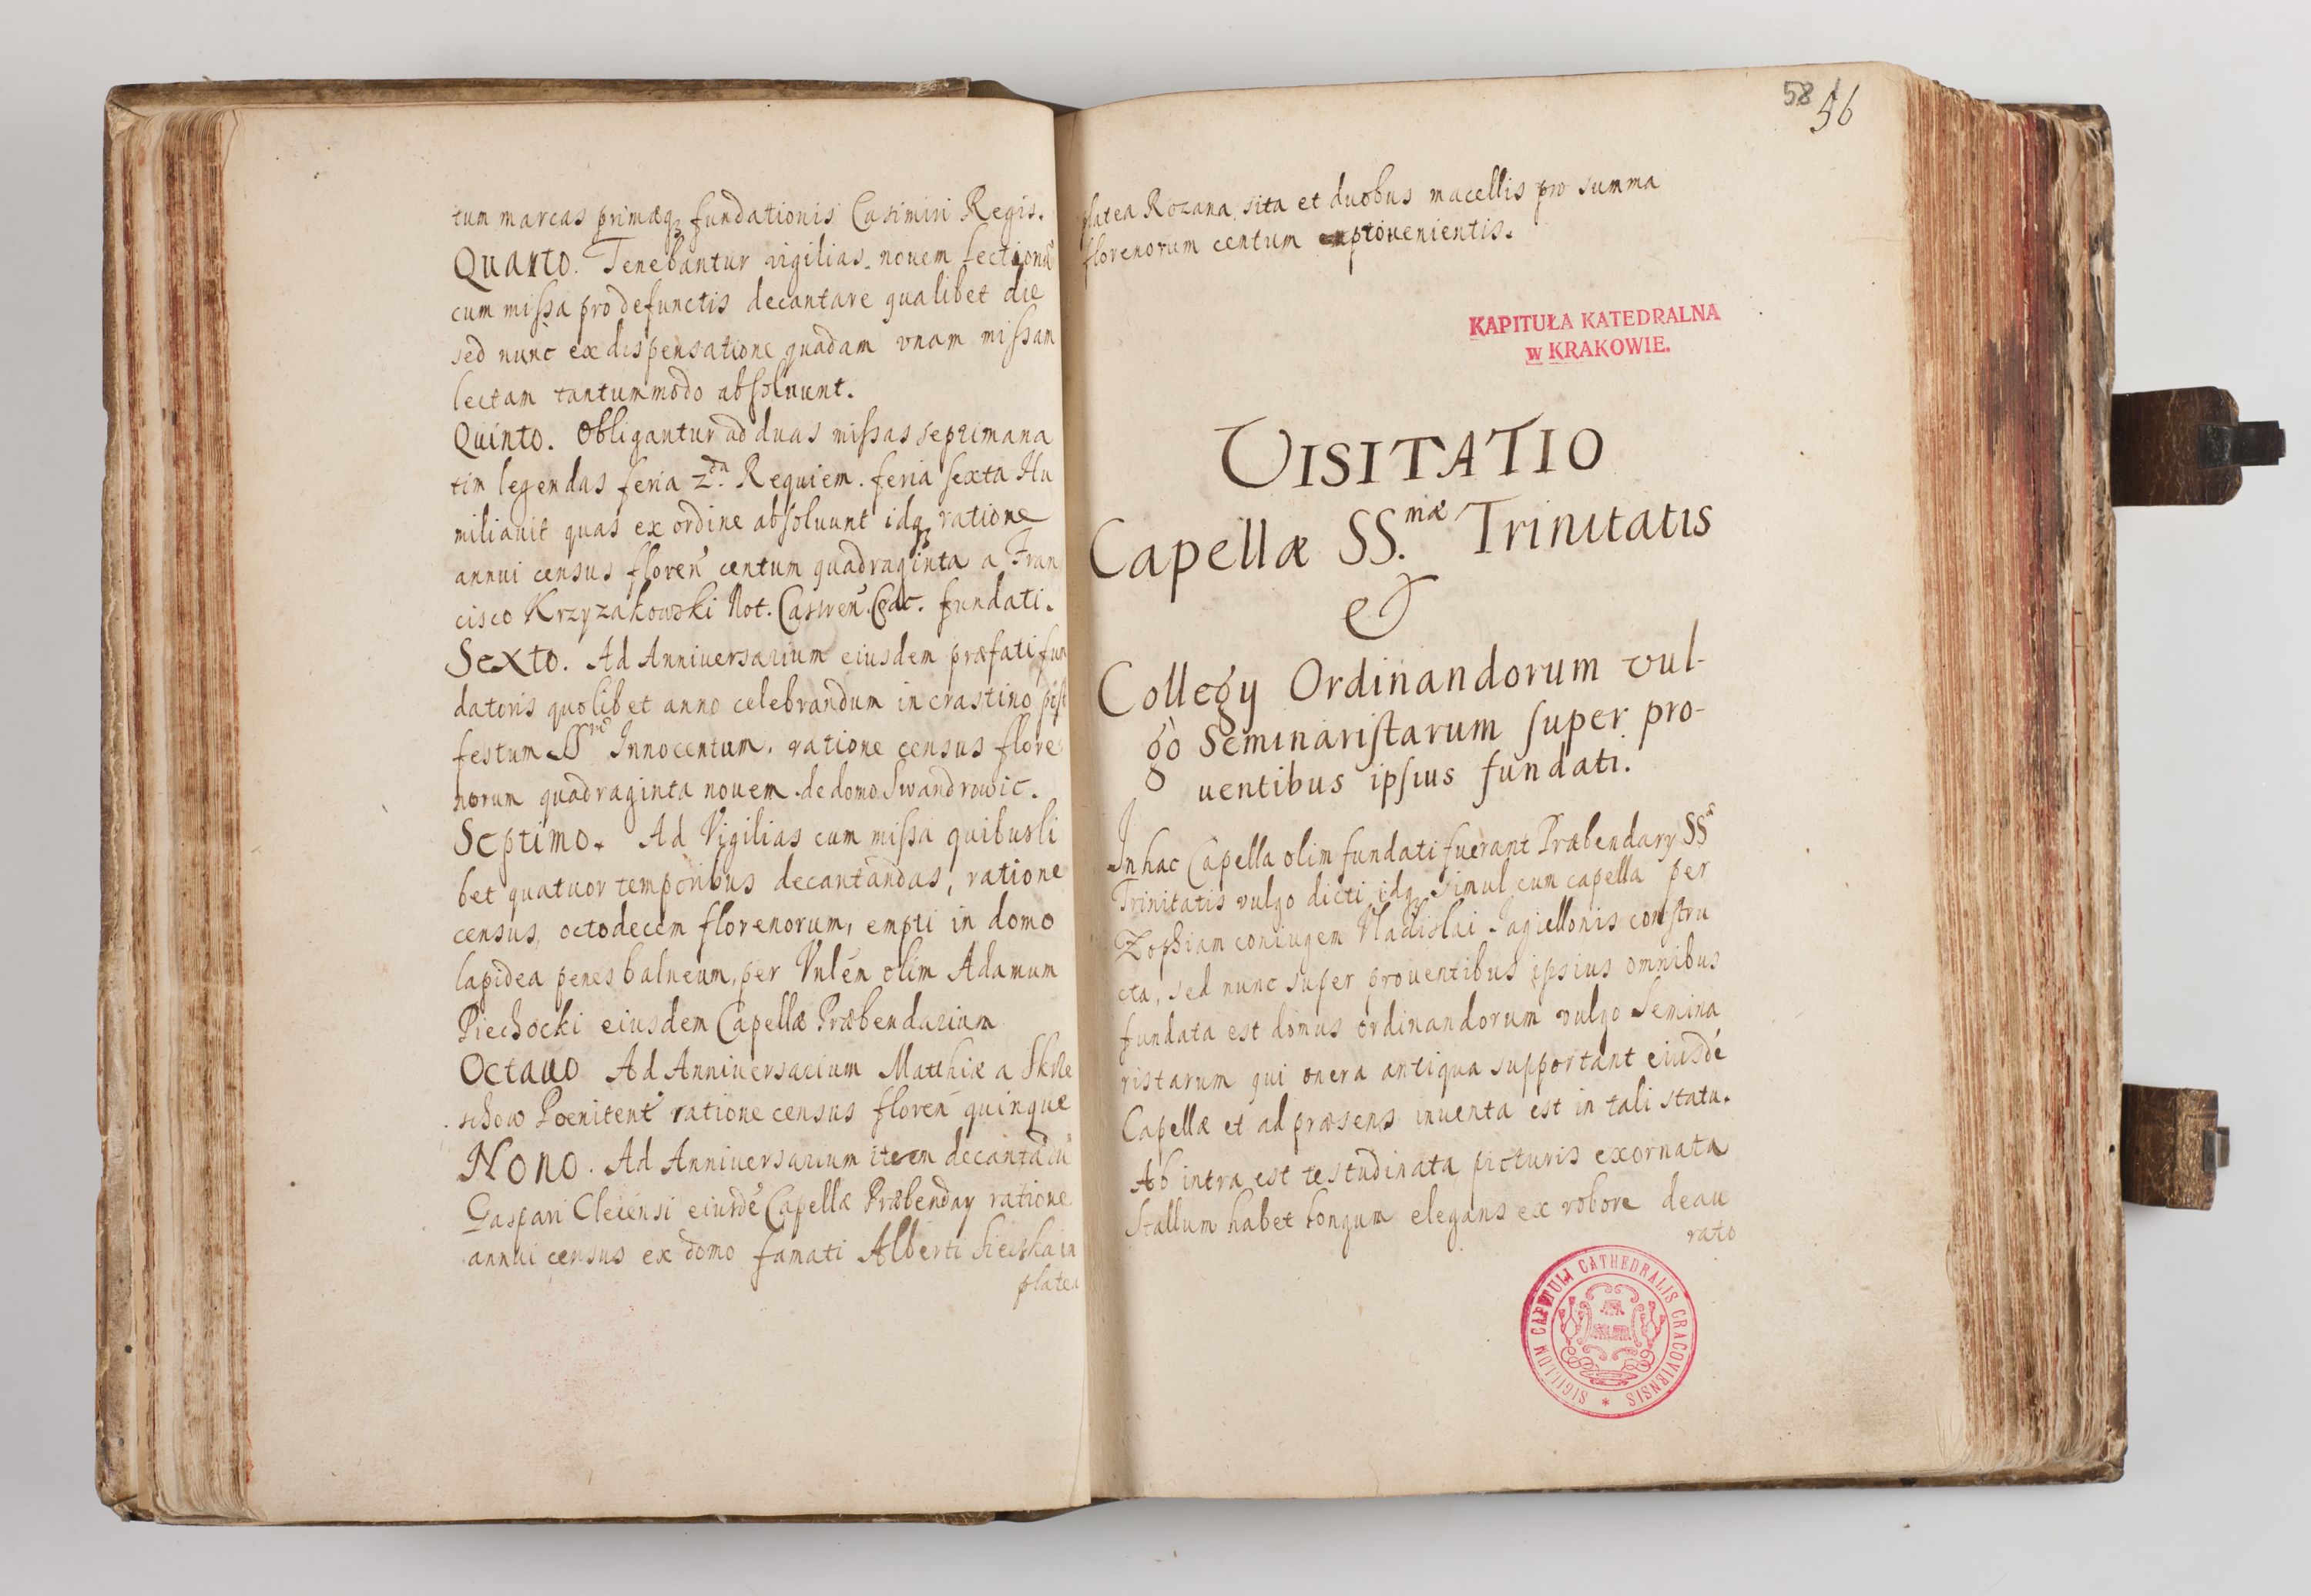 tum marcas primæq3 fundationis Casimiri Regis.
Quarto. Tenebantur vigilias novem lectionũ
cum missa pro defunctis decantare qualibet die
sed nunc ex dispensatione quadam vnam missam
lectam tantummodo absoluunt.
Quinto. Obligantur ad duas missas septimana
tim legendas feria 2.da Requiem. feria sexta Hu
miliauit quas ex ordine absoluunt idq3 ratione
annui census floreñ centum quadraginta a Fran
cisco Krzyzakowski Not. Castreñ. Crac. fundati.
Sexto. Ad Anniuersarium eiusdem præfati fun
datoris quolibet anno celebrandum in crastino post
festum SS. Innocentum, ratione census flore
norum quadraginta nouem de domo Swandrowic.
Septimo. Ad Vigilias cum missa quibusli
bet quatuor temporibus decantandas, ratione
census octodecem florenorum, empti in domo
lapidea penes balneum, per Vnlẽn olim Adamum
Piechocki eiusdem Capellæ Præbendarium
Octauo Ad Anniuersarium Matthiæ a Skrze
schow Poenitent ratione census floreñ quinque
Nono. Ad Anniuersarium item decantadũ
Gaspari Clecensi eiusdẽ Capellæ Præbendarÿ ratione
annui census ex domo famati Alberti in
platea
58
56
platea Rozana sita et duobus macellis pro summa
florenorum centum prouenientis.
KAPITUŁA KATEDRALNA
w KRAKOWIE.
VISITATIO
Capellæ SS.mæ Trinitatis
&
Collegÿ Ordinandorum vul-
gò Seminaristarum super pro-
uentibus ipsius fundati.
In hac Capella olim fundati fuerant Præbendarÿ SSæ
Trinitatis vulgo dicti idq3 simul cum capella per
Zophiam coniugem Vladislai Jagiellonis constru
cta, sed nunc super prouentibus ipsius omnibus
fundata est domus ordinandorum vulgo Semina
ristarum qui onera antiqua supportant eiusdẽ
Capellæ et ad præsens inuenta est in tali statu.
Ab intra est testudinata picturis exornata
Stallum habet longum elegans ex robore deau
rato
SIGILLUM CAPITULI CATHEDRALIS CRACOVIENSIS *